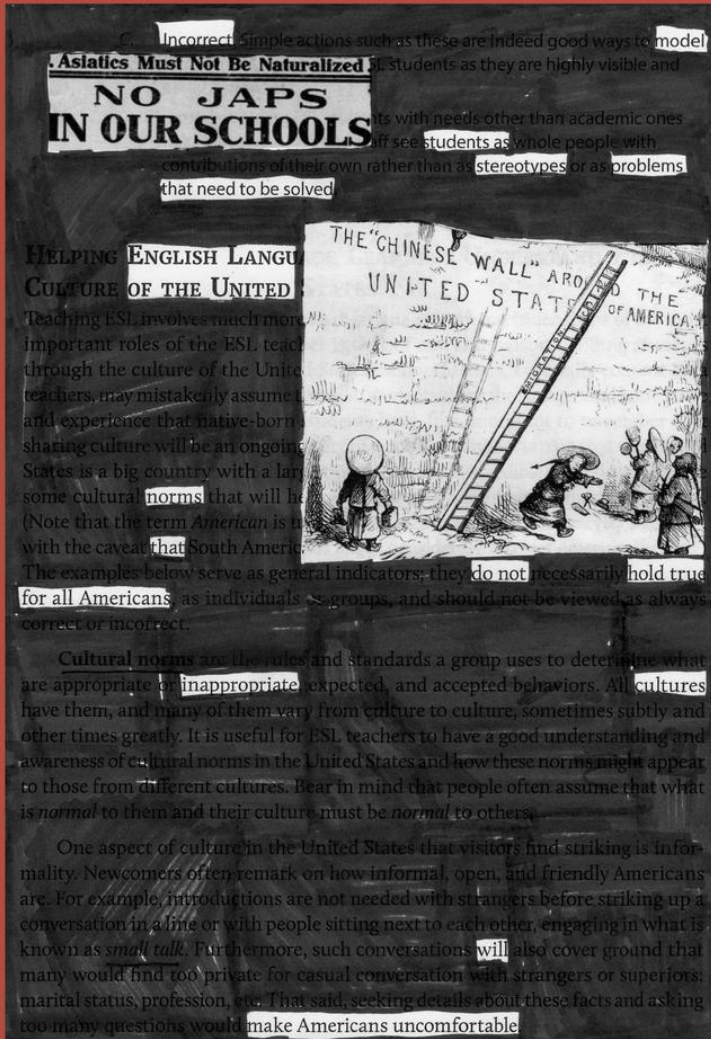 C. Incorrect. Simple actions such as these are indeed good ways to model
. Asiatics Must Not Be Naturalized
SL students as they are highly visible and
NO JAPS
IN OUR SCHOOLS
ts with needs other than academic ones
aff see students as whole people with
contributions of their own rather than as stereotypes or as problems
that need to be solved.
HELPING ENGLISH LANGU
CULTURE OF THE UNITED
THE "CHINESE WALL" AROUND THE
UNITED STATES OF AMERICA.
EMIGRATION
Teaching ESL involves much more
important roles of the ESL teac
through the culture of the Unite
teachers, may mistakenly assume t
and experience that native-born
sharing culture will be an ongoing
States is a big country with a lar
some cultural norms that will he
(Note that the term American is u
with the caveat that South Americ
The examples below serve as general indicators; they do not necessarily hold true
for all Americans, as individuals or groups, and should not be viewed as always
correct or incorrect.
Cultural norms are the rules and standards a group uses to determine what
are appropriate or inappropriate, expected, and accepted behaviors. All cultures
have them, and many of them vary from culture to culture, sometimes subtly and
other times greatly. It is useful for ESL teachers to have a good understanding and
awareness of cultural norms in the United States and how these norms might appear
to those from different cultures. Bear in mind that people often assume that what
is normal to them and their culture must be normal to others.
One aspect of culture in the United States that visitors find striking is infor-
mality. Newcomers often remark on how informal, open, and friendly Americans
are. For example, introductions are not needed with strangers before striking up a
conversation in a line or with people sitting next to each other, engaging in what is
known as small talk. Furthermore, such conversations will also cover ground that
many would find too private for casual conversation with strangers or superiors:
marital status, profession, etc. That said, seeking details about these facts and asking
too many questions would make Americans uncomfortable.